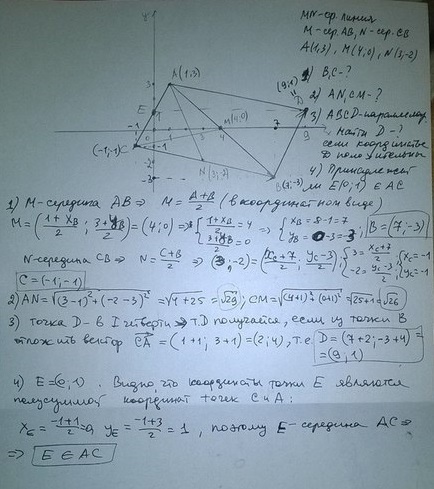 MN-ср. линия
M-ср. AB, N-ср. CB
A(1;3), M(4;0), N(3;-2)
1) B,C-?
2) AN, CM-?
3) ABCD-параллелогр.
найти D-?
если координаты
D положительны
4) Принадлежит
ли E(0;1) ∈ AC
y
A(1;3)
(9;1)
D
3
E
1
M(4;0)
-1
0
1
4
7
9
x
(-1;-1) C
-2
-3
N(3;-2)
B(7;-3)
1) M-середина AB ⇒ M = (A+B)/2 (в координатном виде)
M = ((1+x_B)/2 ; (3+y_B)/2) = (4;0) ⇒ { (1+x_B)/2 = 4 ; (3+y_B)/2 = 0 ⇒ { x_B = 8-1 = 7 ; y_B = 0-3 = -3 ; B = (7;-3)
N-середина CB ⇒ N = (C+B)/2 ⇒ (3;-2) = ((x_C+7)/2 ; (y_C-3)/2), { 3 = (x_C+7)/2 ; -2 = (y_C-3)/2 , { x_C = -1 ; y_C = -1
C = (-1;-1)
2) AN = √((3-1)² + (-2-3)²) = √(4+25) = √29 ; CM = √((4+1)² + (0+1)²) = √(25+1) = √26
3) точка D - в I четверти ⇒ т.D получается, если из точки B
отложить вектор CA = (1+1; 3+1) = (2;4), т.е. D = (7+2; -3+4) =
= (9;1)
4) E = (0;1). Видно, что координаты точки E являются
полусуммой координат точек C и A:
x_E = (-1+1)/2 = 0, y_E = (-1+3)/2 = 1, поэтому E-середина AC ⇒
⇒ E ∈ AC